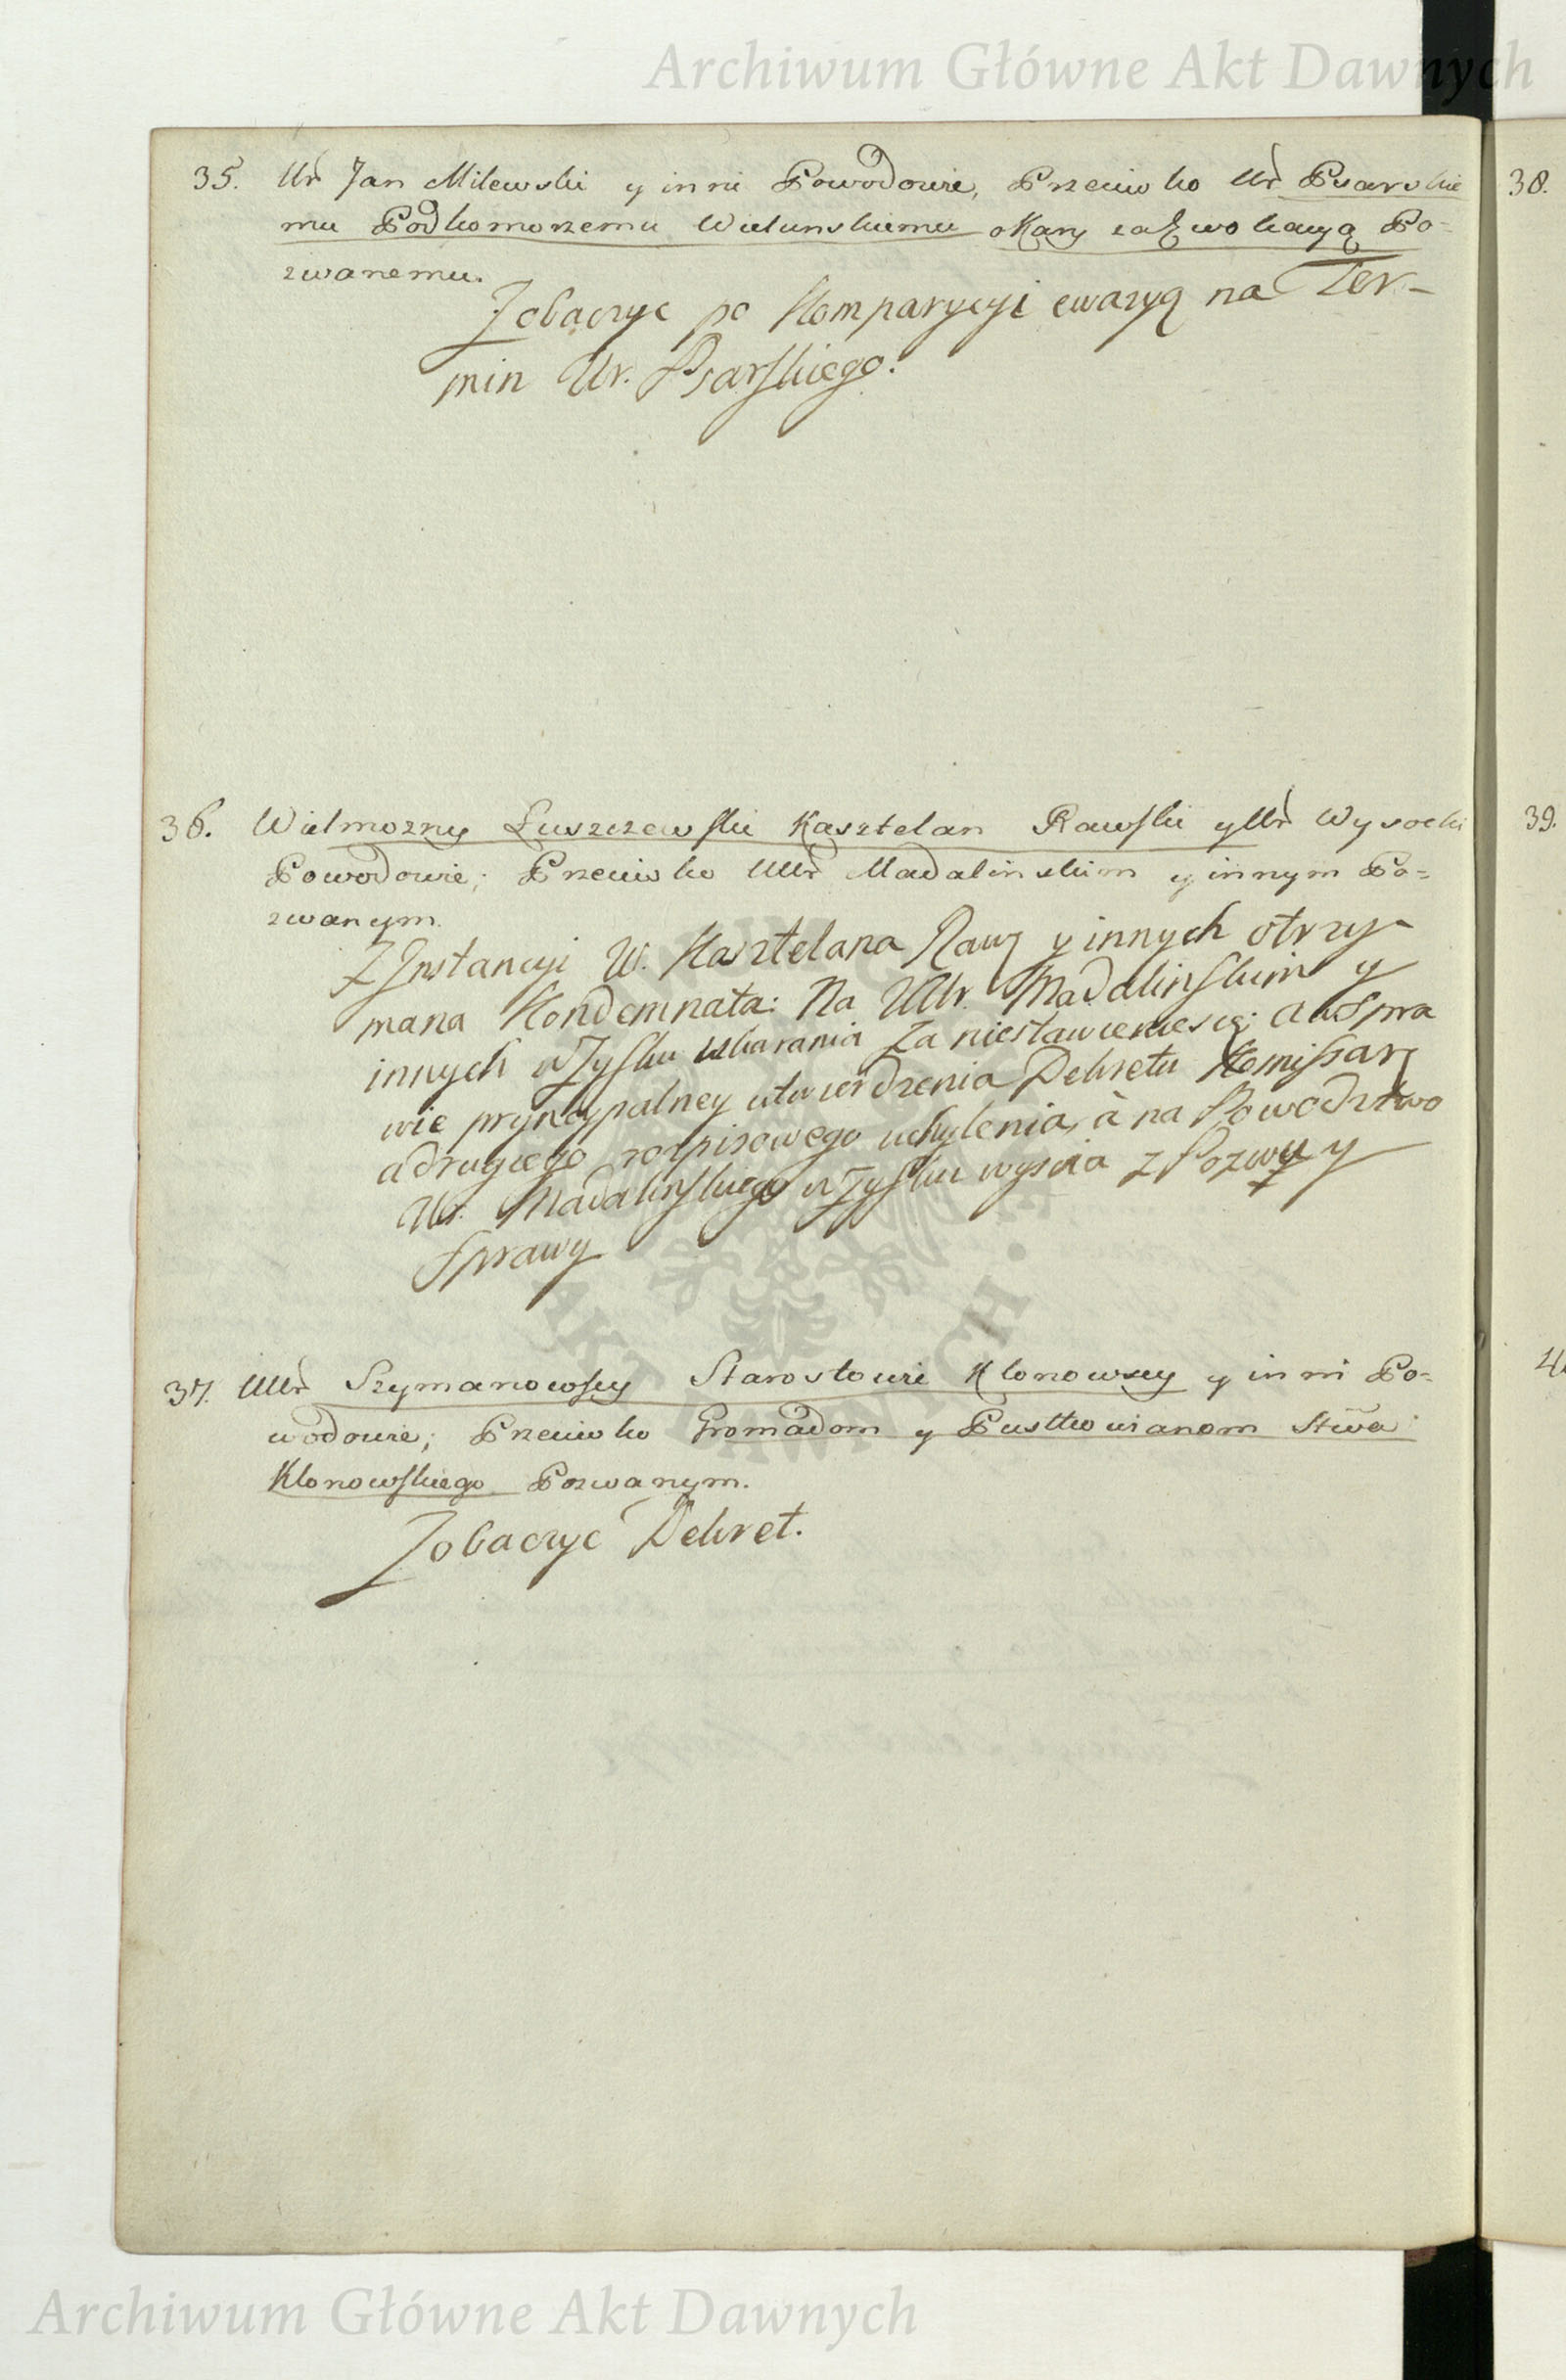 Archiwum Główne Akt Dawnych
35. Ur Jan Milewski y inni Powodowie, Przeciwko Ur Psarskie
mu Podkomorzemu Wielunskiemu o Kary za Ewokacyą Po=
zwanemu.
Zobaczyc po Komparycyi ewazyą na Ter-
min Ur. Psarskiego.
36. Wielmozny Łuszczewski Kasztelan Rawski y Ur Wysocki
Powodowie; Przeciwko UUr Madalinskim y innym Po=
zwanym.
Z Jnstancyi W. Kasztelana Raw y innych otrzy-
mana Kondemnata: Na UUr. Madalinskim y
innych w Zysku ukarania za niestawienie się; a w Spra
wie pryncypalney utwierdzenia Dekretu Komissar
a drugiego rozpisowego uchylenia, à na Powodztwo
Ur. Madalinskiego w Zysku wyscia z Pozwu y
Sprawy
37. UUr Szymanowscy Starostowie Klonowscy y inni Po=
wodowie; Przeciwko Gromadom y Pustkowianom Stwa
Klonowskiego Pozwanym.
Zobaczyc Dekret.
38.
39.
AKT DAWNYCH
Archiwum Główne Akt Dawnych